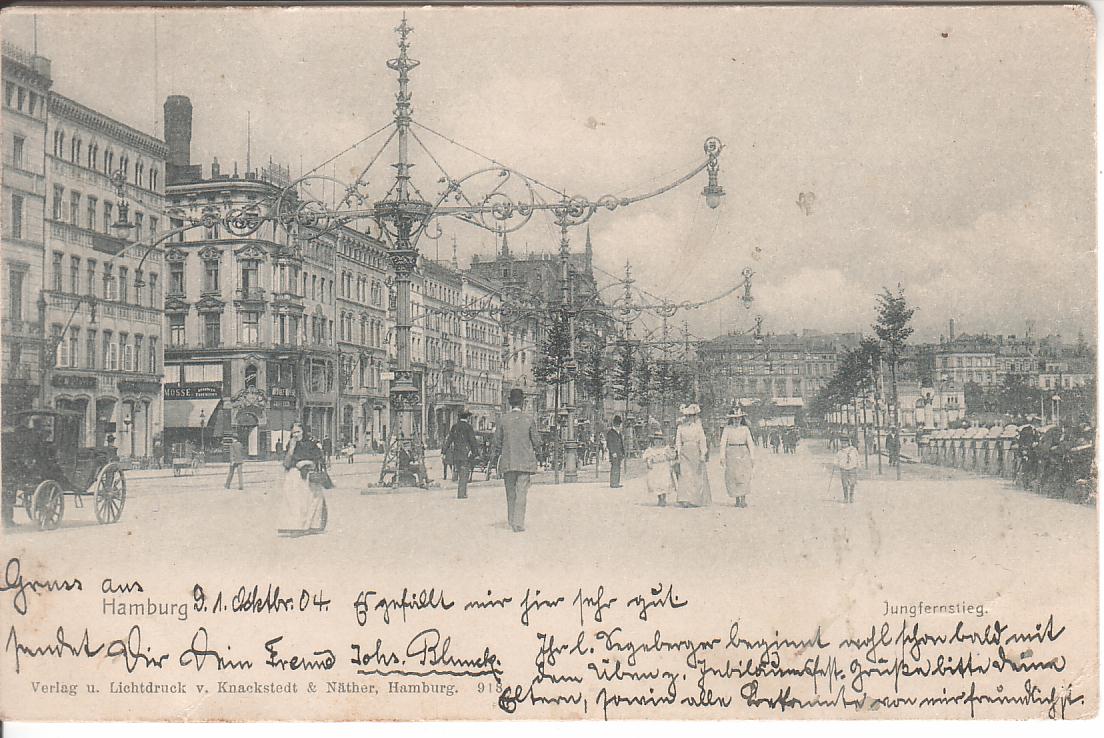 MOSSE
Gruss aus
Hamburg 9. 1. Oktbr. 04. Es gefällt mir hier sehr gut.
Jungfernstieg.
sendet Dir Dein Freund Johs. Blunck.
Ihr l. Segeberger beginnt wohl schon bald mit
dem Üben z. Jubiläumsfest. Grüße bitte Deine
Eltern, sowie alle Bekannte von mir freundlichst.
Verlag u. Lichtdruck v. Knackstedt & Näther, Hamburg. 918